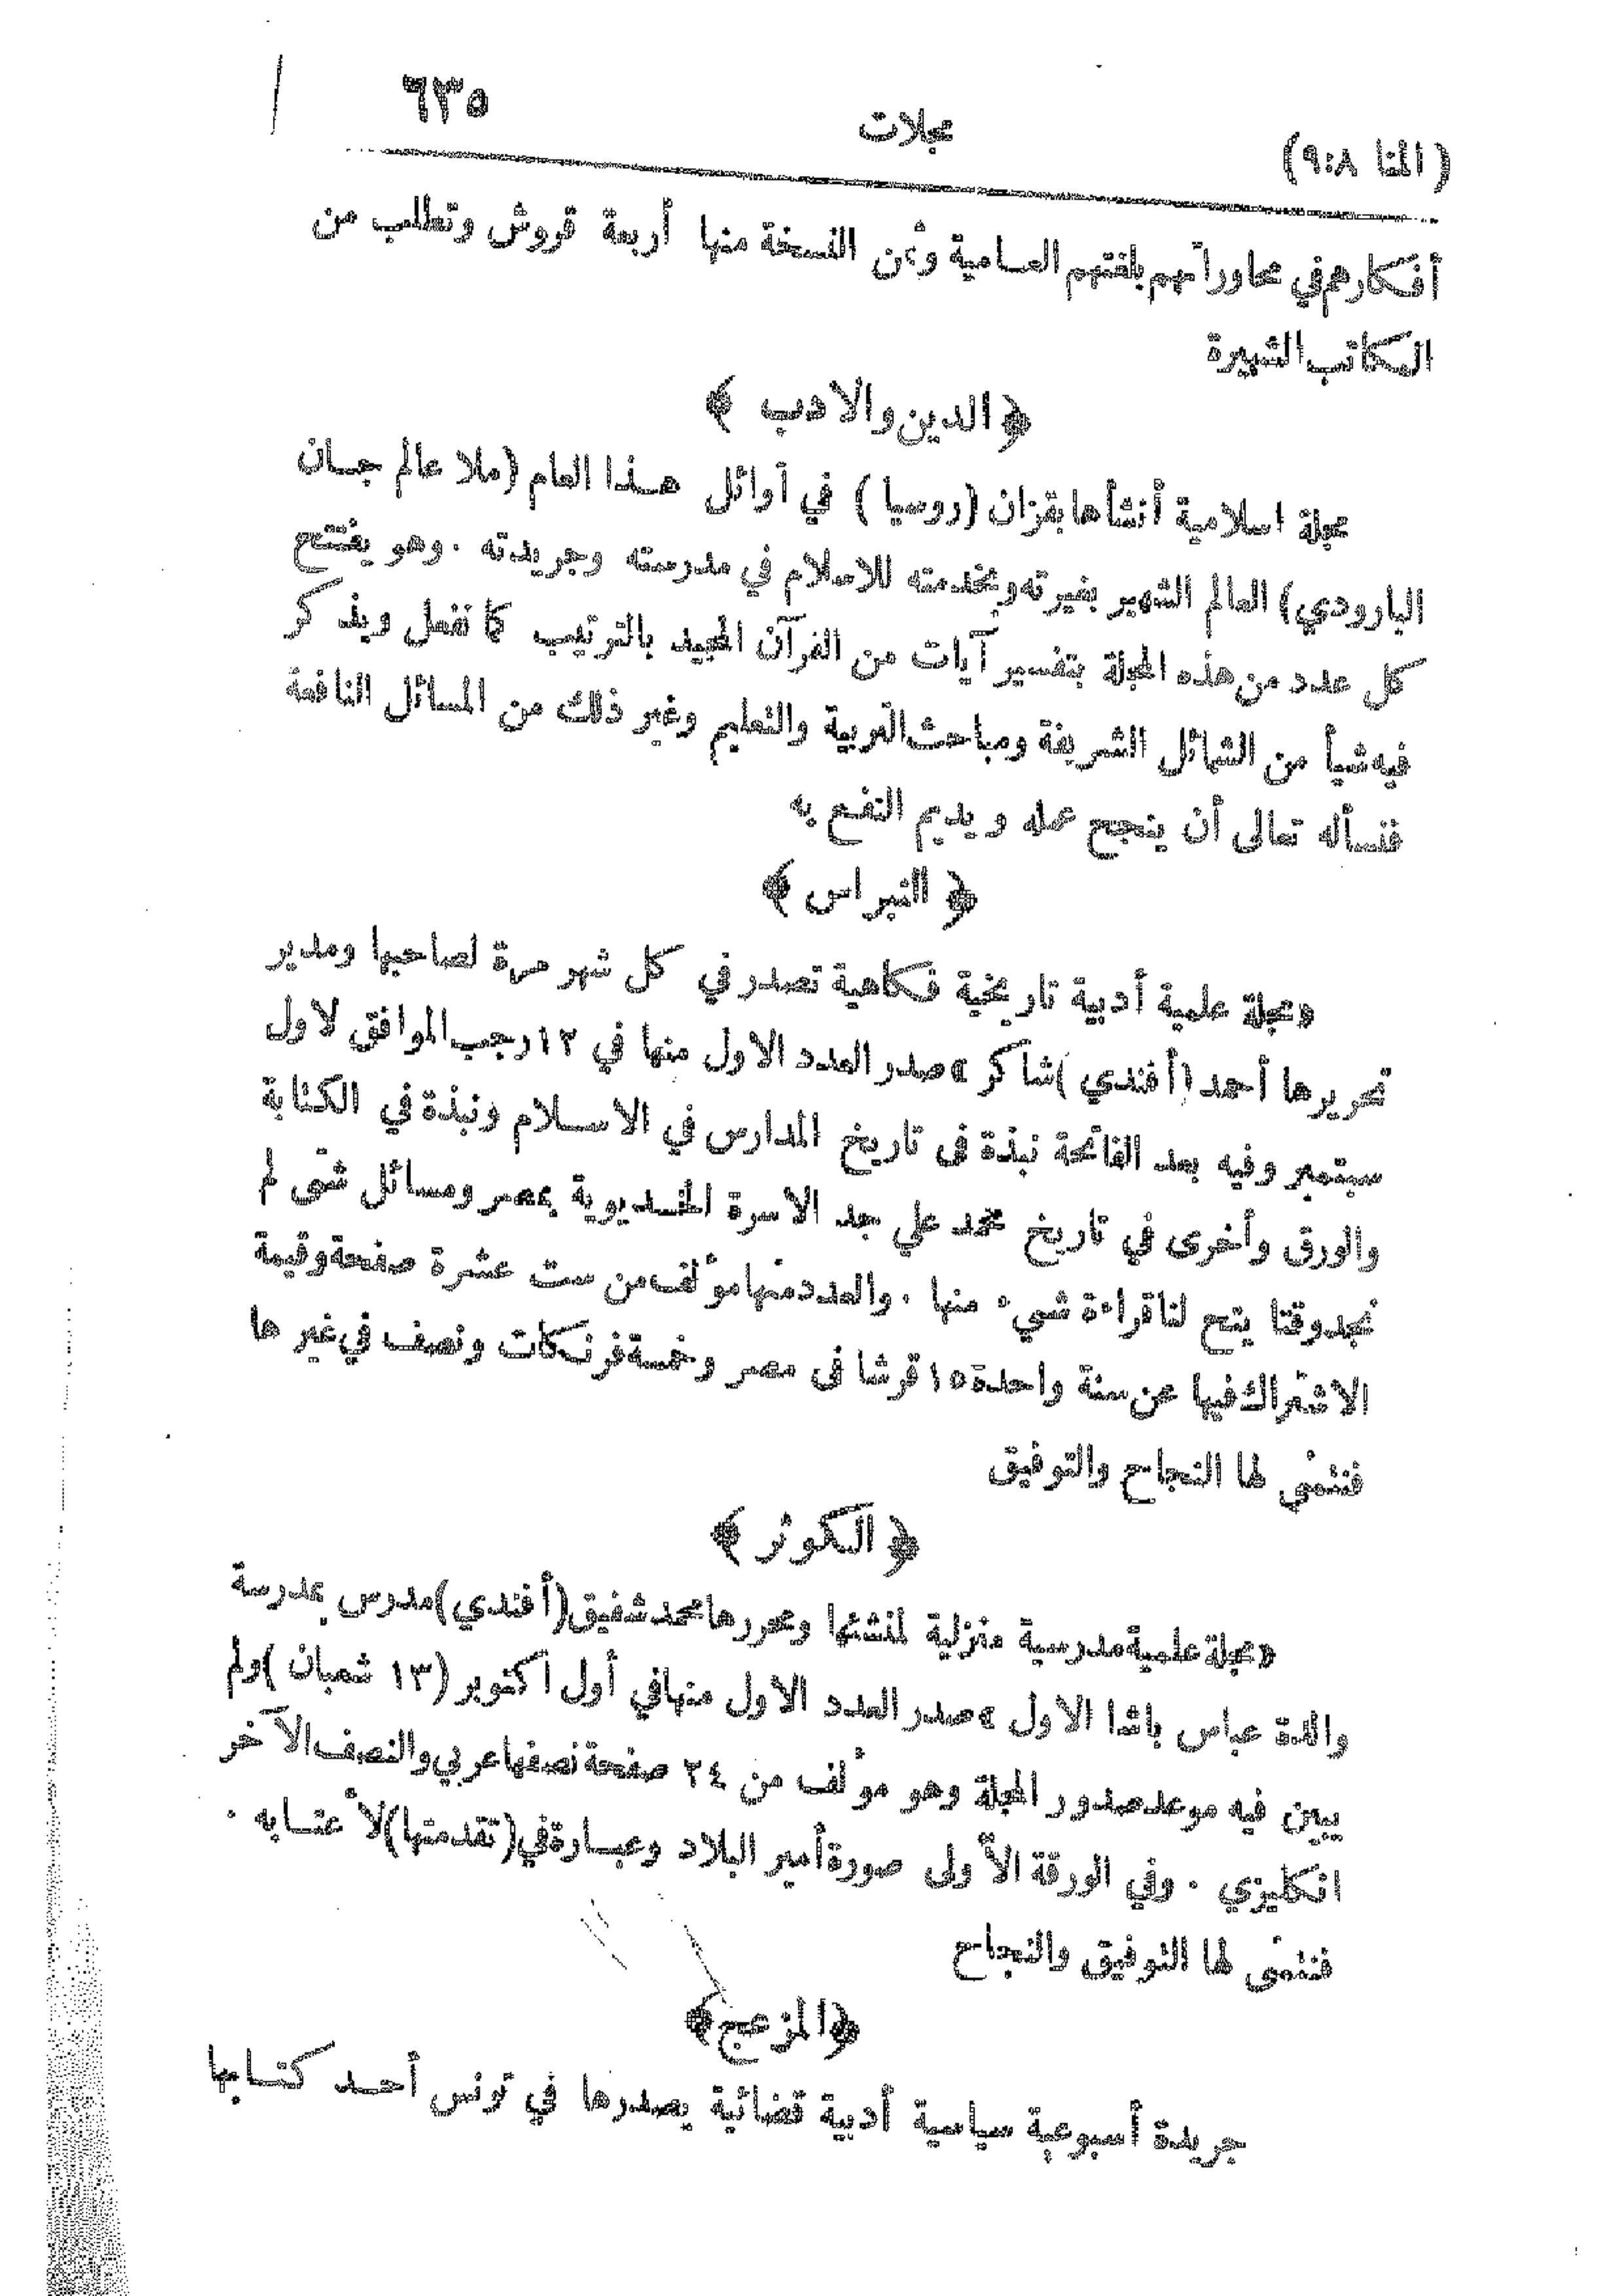 (المنا ٩:٨) مجلات ٦٣٥
أفكارهم في محاوراتهم بلغتهم العامية وثمن النسخة منها أربعة قروش وتطلب من
المكاتب الشهيرة
﴿ الدين والادب ﴾
مجلة اسلامية أنشأها بقزان (روسيا) في أوائل هـذا العام (ملا عالم جـان
البارودي) العالم الشهير بغيرته وبخدمته للاسلام في مدرسته وجريدته . وهو يفتتح
كل عدد من هذه المجلة بتفسير آيات من القرآن المجيد بالترتيب كما نفعل ويذكر
فيه شيأ من الشمائل الشريفة ومباحث التربية والتعليم وغير ذلك من المسائل النافعة
فنسأله تعالى أن ينجح عمله ويديم النفع به
﴿ النبراس ﴾
«مجلة علمية أدبية تاريخية فكاهية تصدر في كل شهر مرة لصاحبها ومدير
تحريرها أحمد (أفندي) شاكر» صدر العدد الاول منها في ١٢ رجب الموافق لاول
سبتمبر وفيه بعد الفاتحة نبذة فى تاريخ المدارس في الاسـلام ونبذة في الكتابة
والورق وأخرى في تاريخ محمد علي جد الاسرة الخـديوية بمصر ومسائل شتى لم
نجد وقتا يتح لنا قراءة شيء منها . والعدد منها مؤلف من ست عشرة صفحة وقيمة
الاشتراك فيها عن سنة واحدة ١٥ قرشا فى مصر وخمسة فرنكات ونصف في غيرها
فنتمنى لها النجاح والتوفيق
﴿ الكوثر ﴾
«مجلة علمية مدرسية منزلية لمنشئها ومحررها محمد شفيق (أفندي) مدرس بمدرسة
والدة عباس باشا الاول» صدر العدد الاول منها في أول أكتوبر (١٣ شعبان) ولم
يبين فيه موعد صدور المجلة وهو مؤلف من ٢٤ صفحة نصفها عربي والنصف الآخر
انكليزي . وفي الورقة الأولى صورة أمير البلاد وعبـارة في (تقدمتها) لأعتـابه .
فنتمنى لها التوفيق والنجاح
﴿المزعج﴾
جريدة أسبوعية سياسية أدبية قضائية يصدرها في تونس أحـد كتـابها